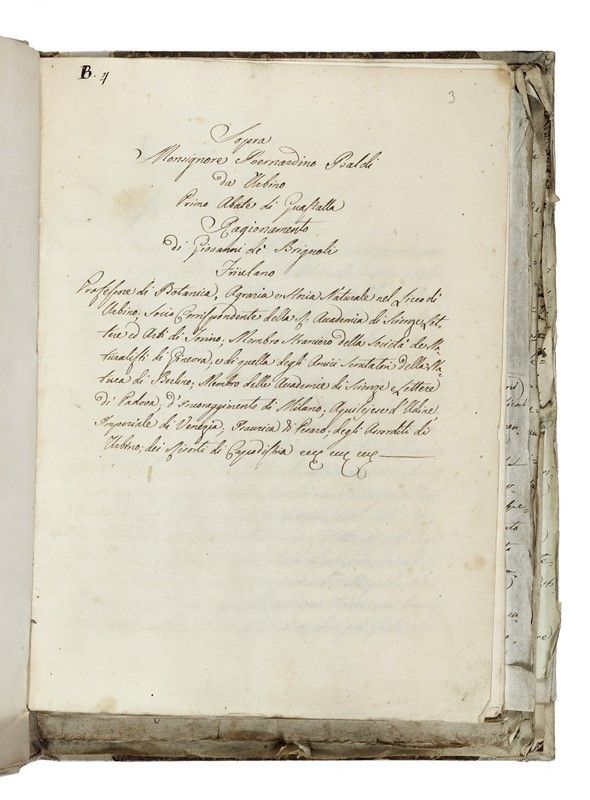 B. 4
3
Sopra
Monsignore Bernardino Baldi
da Urbino
Primo Abate di Guastalla
Ragionamento
di Giovanni de' Brignoli
Friulano
Professore di Botanica, Agraria e Storia Naturale nel Liceo di
Urbino, Socio Corrispondente della R. Accademia di Scienze, Let-
tere ed Arti di Torino, Membro straniero della Società de' Na-
turalisti di Ginevra, e di quella degli Amici Scrutatori della Na-
tura di Berlino, Membro delle Accademie di Scienze e Lettere
di Padova, d'Incoraggimento di Milano, Aquilejese d'Udine,
Imperiale di Venezia, di Pesaro, degli Assorditi di
Urbino, dei Risorti di Capodistria